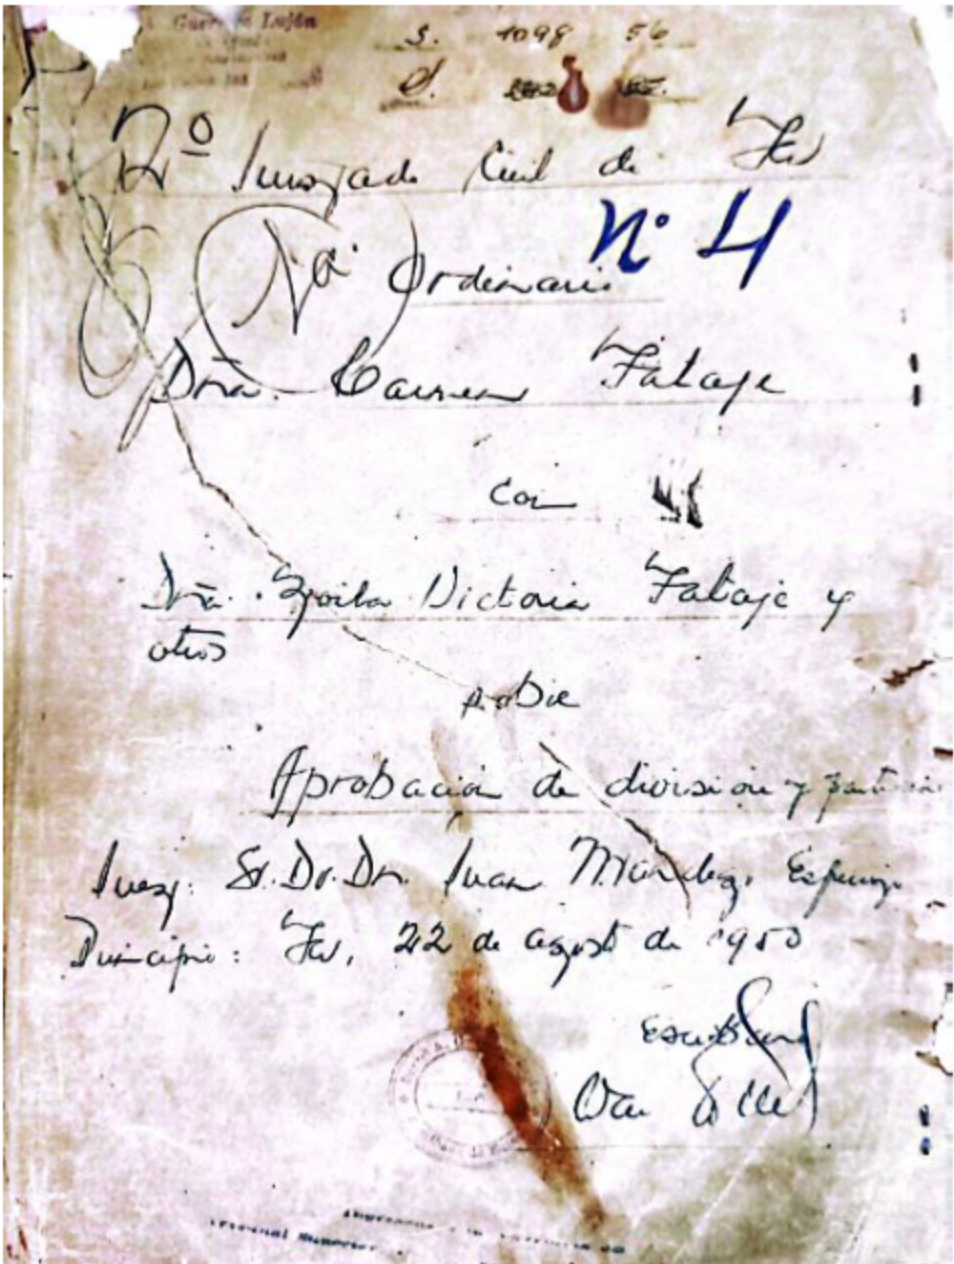 Guerrero Luján
S. 1098 56
S.
2º Juzgado Civil de Ica
Nº 4
1ª Ordinario
Dña. Carmen Fataje
con
Dña. Zoila Victoria Fataje y
otros
sobre
Aprobación de división y partición
Juez: Sr. Dr. Dn. Juan Méndez
Principio: Ica, 22 de agosto de 1950
Escribano